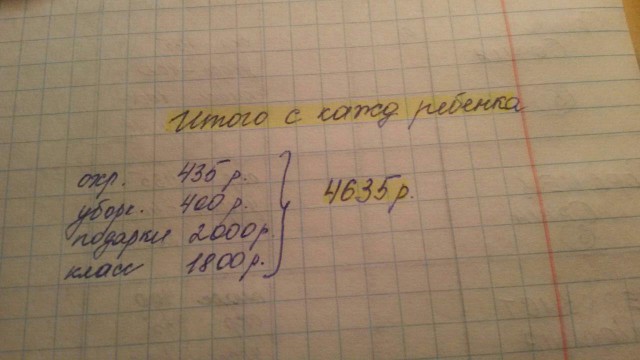 Итого с кажд ребенка
охр. 435р.
уборк. 400р.
подарки 2000р.
класс 1800р.
4635р.